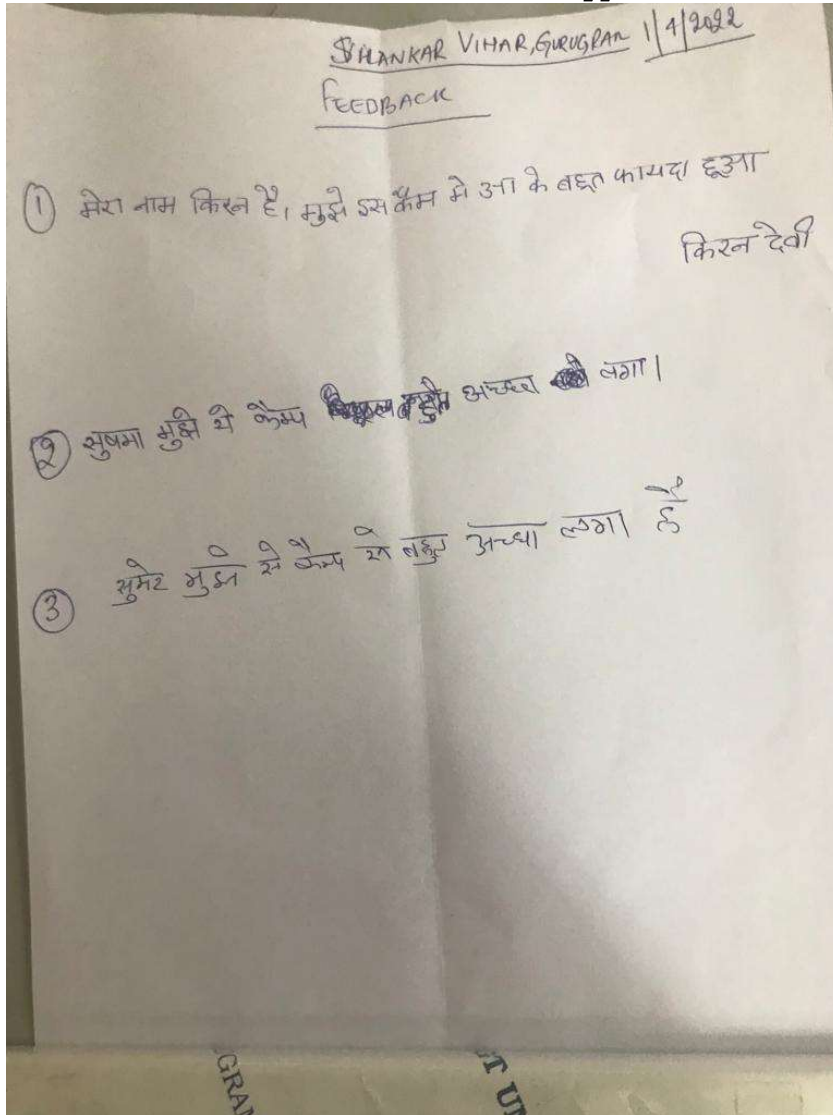 SHANKAR VIHAR, GURUGRAM 1/4/2022
FEEDBACK
① मेरा नाम किरन है, मुझे इस कैम मे आ के बहूत फायदा हूआ
किरन देवी
② सुषमा मुझे ये कैम्प अच्छा लगा।
③ सुमेर मुझे से कैम्प से बहुत अच्चा लगा है
GRAM
T UN